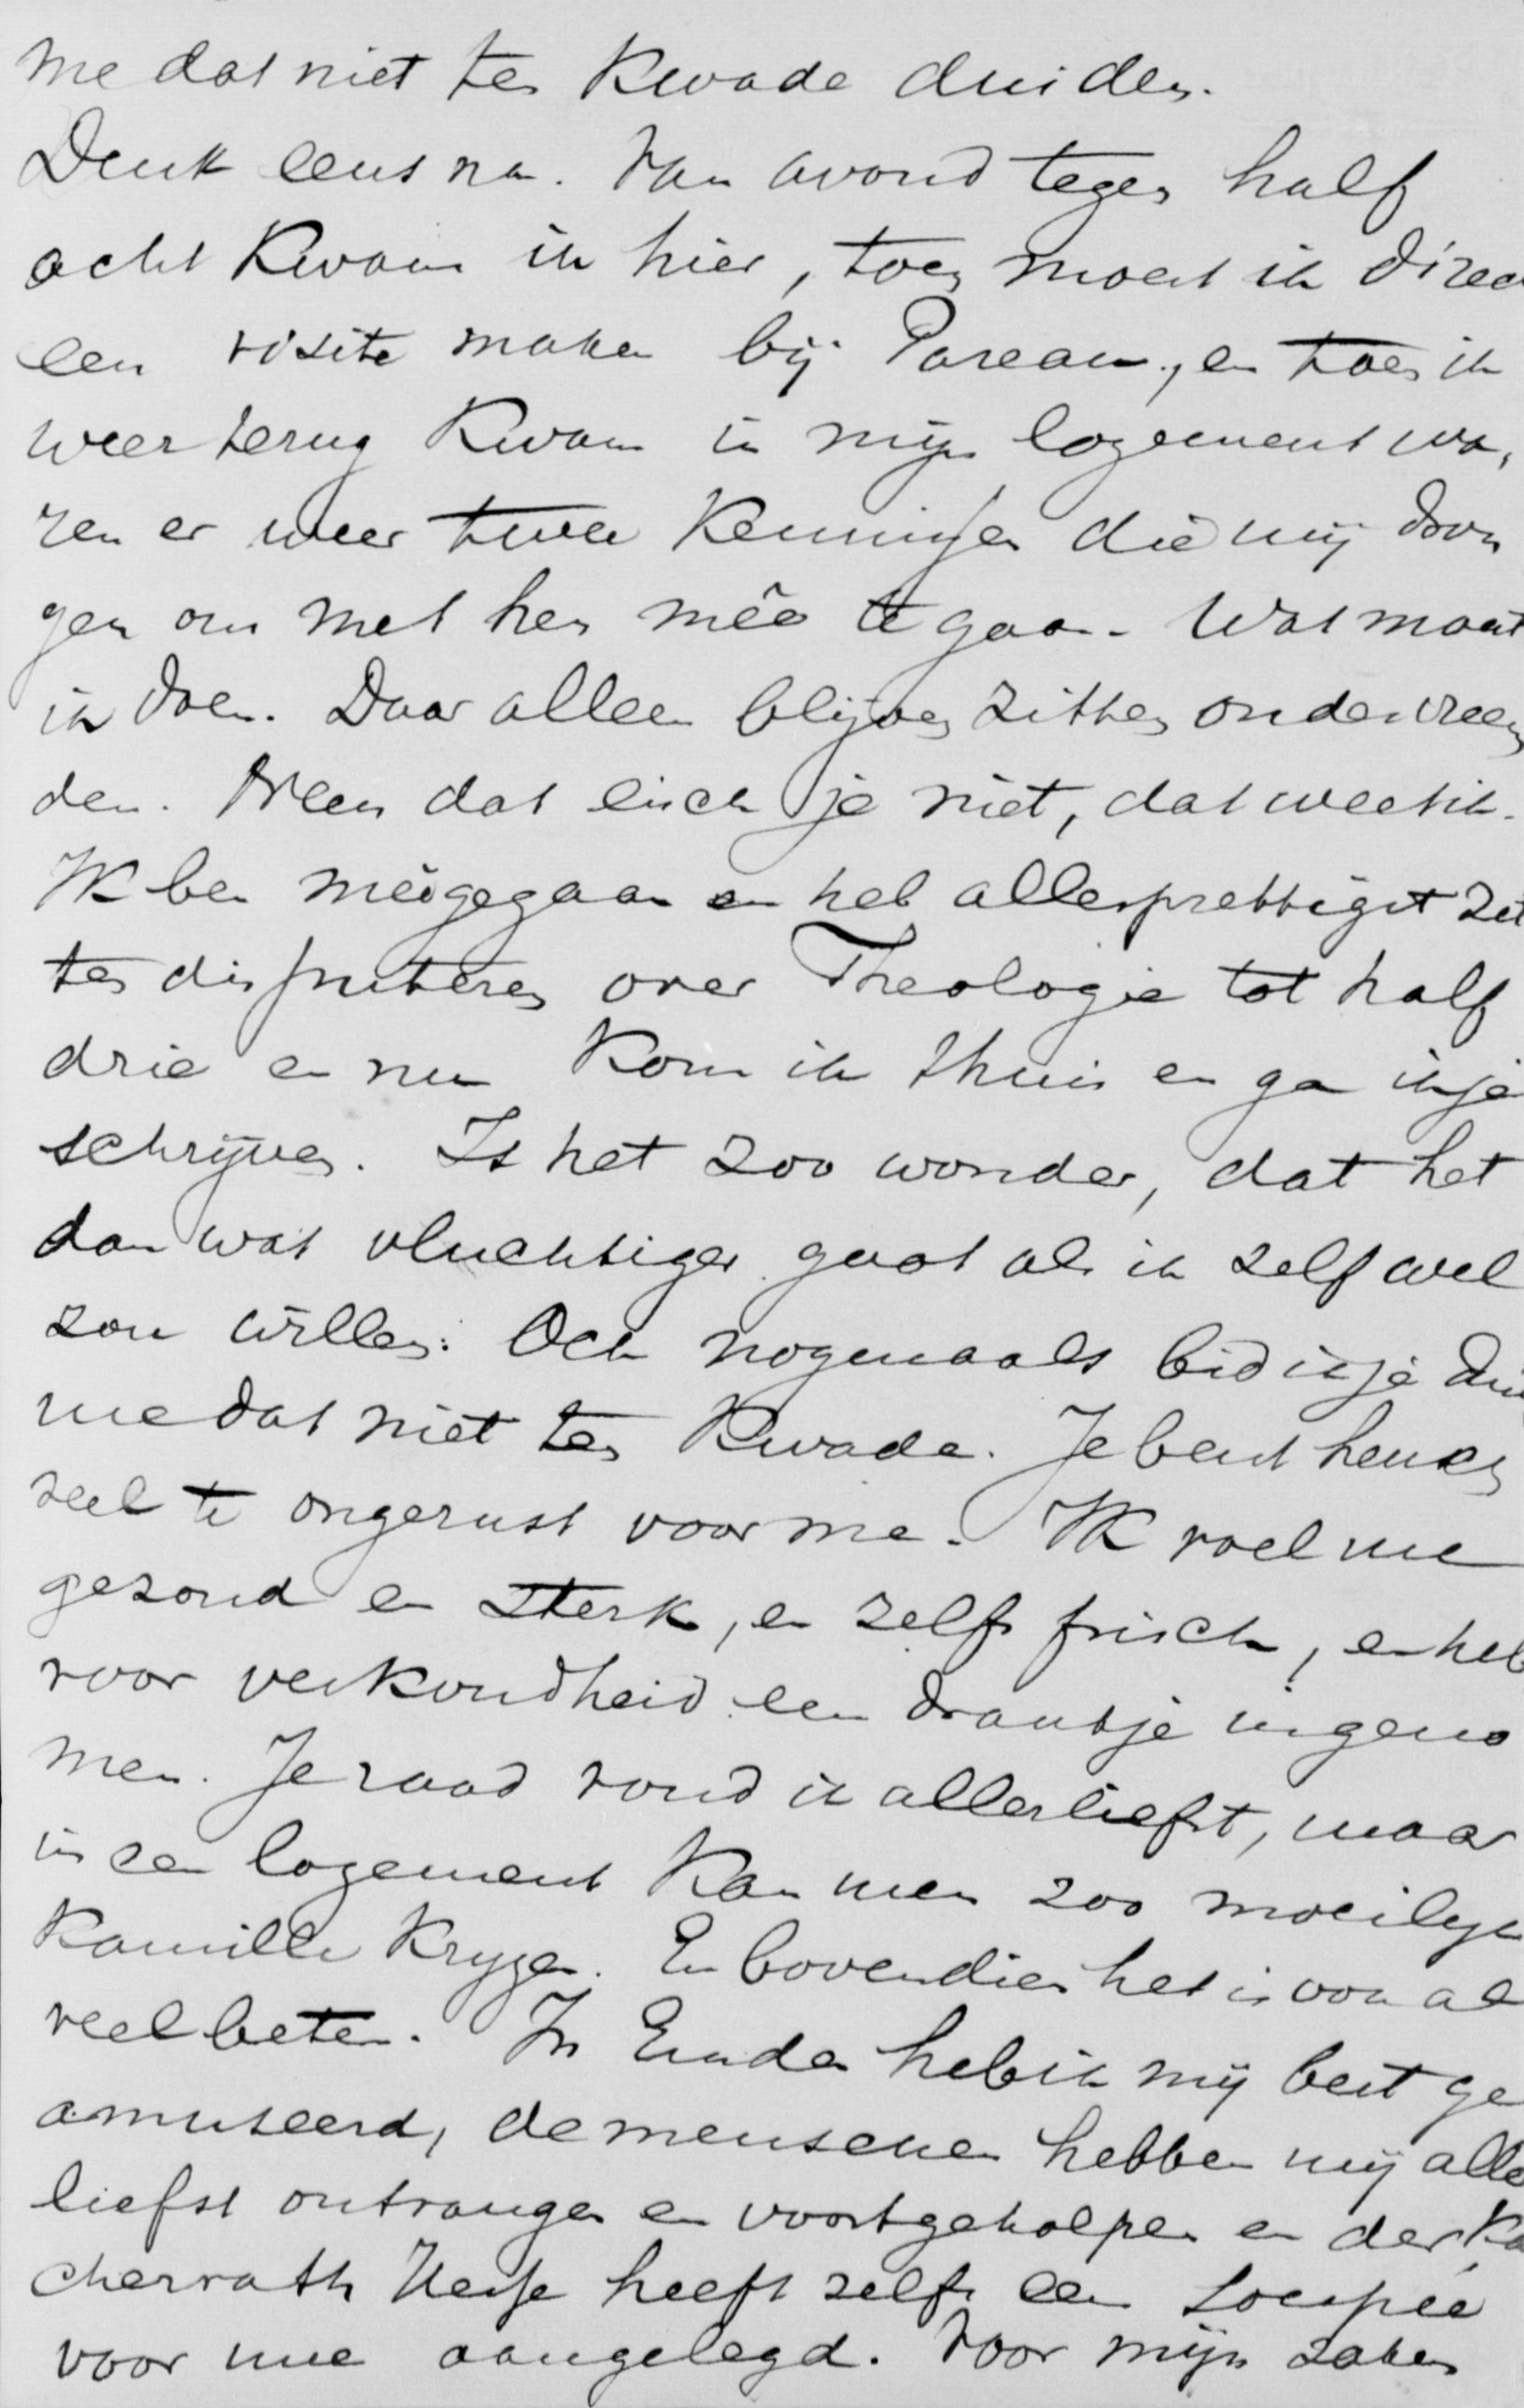 me dat niet ten kwade duiden.
Denk eens na. Van avond tegen half
acht kwam ik hier, toen moest ik direct
een visite maken bij Pareau, en toen ik
weer terug kwam in mijn logement wa,
ren er weer twee kennissen die mij dron
gen om met hen mêe te gaan. Wat moest
ik doen. Daar alleen blijven zitten onder vreem
den. Neen dat eisch je niet, dat weet ik.
Ik ben mêegegaan en heb allerprettigst zit
ten disputeren over Theologie tot half
drie en nu kom ik thuis en ga ik je
schrijven. Is het zoo wonder, dat het
dan wat vluchtiger gaat als ik zelf wel
zou willen. Och nogmaals bid ik je dui
me dat niet ten kwade. Je bent heusch
veel te ongerust voor me. Ik voel me
gezond en sterk, en zelfs frisch, en heb
voor verkoudheid een drankje ingeno
men. Je raad vond ik allerliefst, maar
in een logement kan men zoo moeilijk
kamille krijgen. En bovendien het is van al
veel beter. In Emden heb ik mij best ge
amuseerd, de menschen hebben mij aller
liefst ontvangen en voortgeholpen en der
heeft zelfs een Soupée
voor me aangelegd. Voor mijn zaken